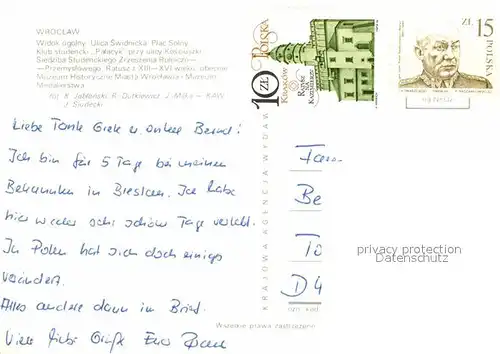 WROCŁAW
Widok ogólny. Ulica Świdnicka. Plac Solny
Klub studencki „Pałacyk” przy ulicy Kościuszki
Siedziba Studenckiego Zrzeszenia Rolniczo-
—Przemysłowego. Ratusz z XIII—XVI wieku, obecnie
Muzeum Historyczne Miasta Wrocławia i Muzeum
Medalierstwa
fot. K. Jabłoński, R. Dutkiewicz, J. — KAW
J. Siudecki
10 ZŁ
POLSKA
KRAKÓW
ZŁ 15
POLSKA
KRAJOWA AGENCJA WYDAW
Liebe Tante u. Onkel Bernd!
Ich bin für 5 Tage bei meinen
Bekannten in Breslau. Ich habe
hier wieder sehr schöne Tage verlebt.
In Polen hat sich doch einiges
verändert.
Alles andere dann im Brief.
Viele liebe Grüße Eure
Fam
Be
D 4
privacy protection
Datenschutz
Wszelkie prawa zastrzeżone